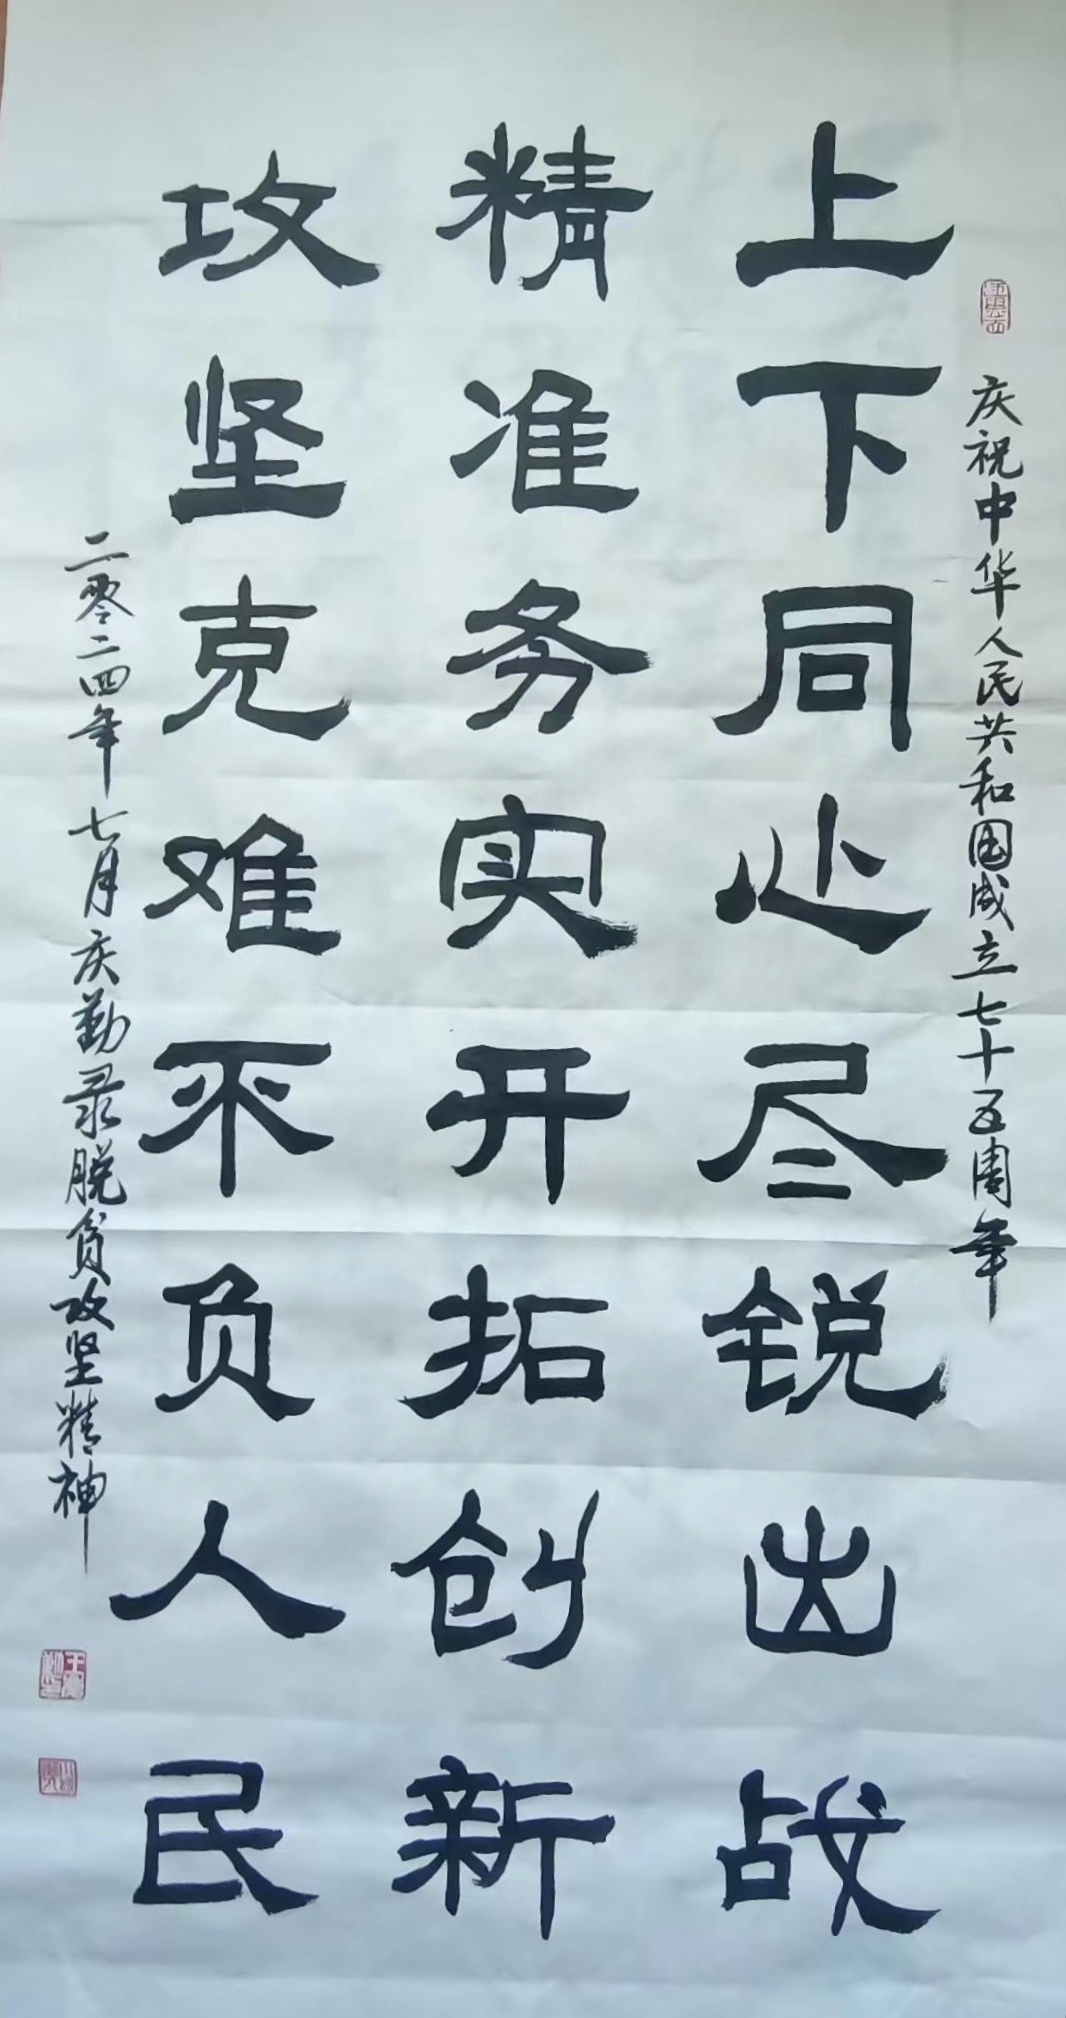 庆祝中华人民共和国成立七十五周年
上下同心尽锐出战
精准务实开拓创新
攻坚克难不负人民
二零二四年七月庆勤录脱贫攻坚精神